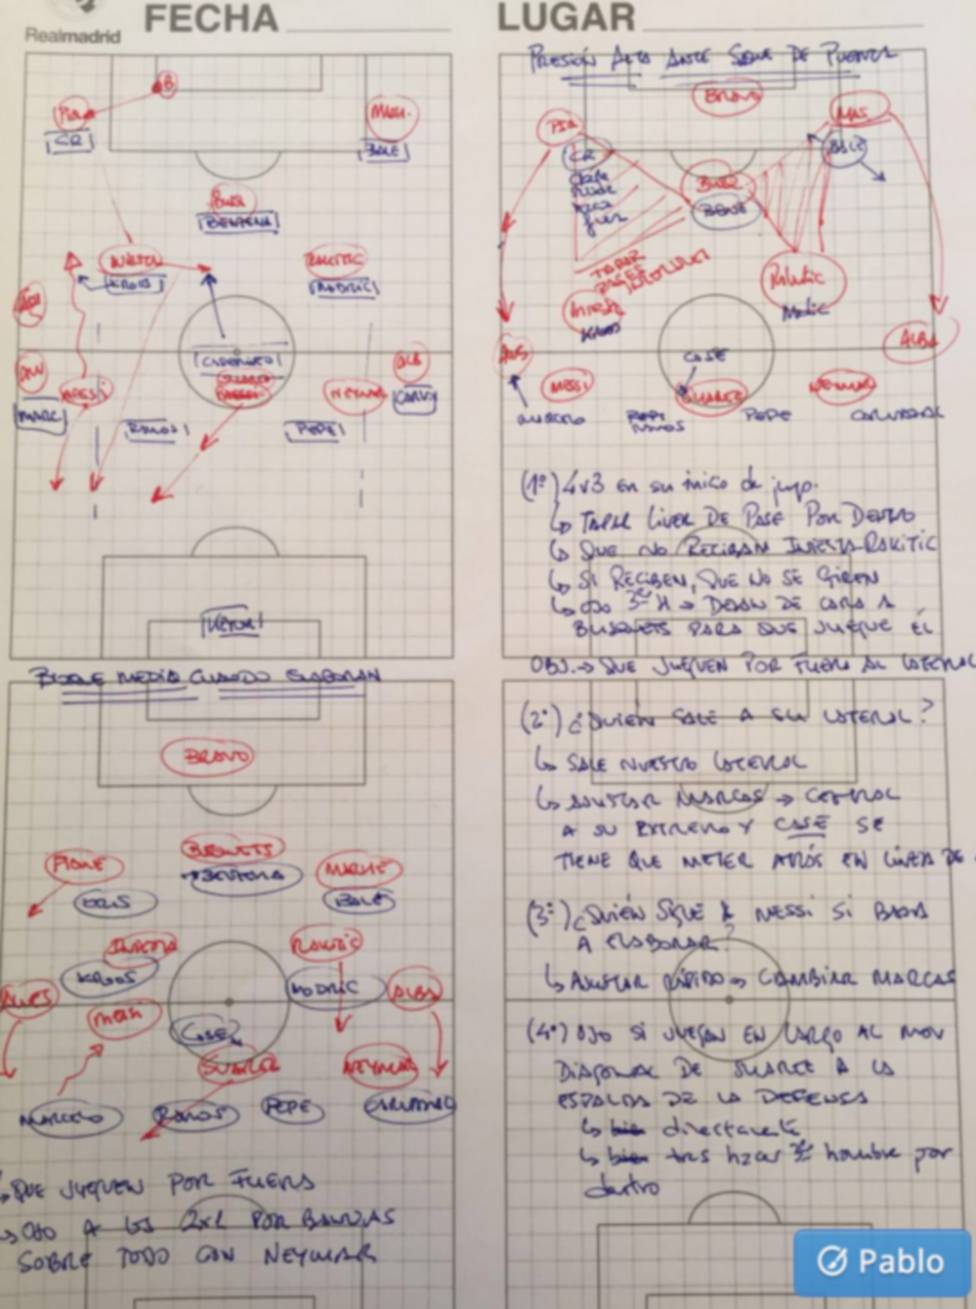 Realmadrid
FECHA
LUGAR
B
PIQ
CR
MASCH.
BALE
BUSQ
BENZEMA
INIESTA
KROOS
RAKITIC
MODRIC
CASEMIRO
MESSI
MARC.
SUAREZ
NEYMAR
ALB
CARV
RAMOS
PEPE
KEYLOR
PRESIÓN ALTA ANTE SAQUE DE PUERTA
BRAVO
PIQ
MAS.
CR
BALE
BUSQ
BENZ
TAPAR
PASES
INTERIORES
Iniesta
KROOS
Rakitic
Modric
ALBA
CASE
MESSI
SUAREZ
NEYMAR
MARCELO
RAMOS
PEPE
CARVAJAL
(1º) 4v3 en su inicio de juego.
↳ TAPAR LÍNEA DE PASE POR DENTRO
↳ QUE NO RECIBAN INIESTA-RAKITIC
↳ SI RECIBEN, QUE NO SE GIREN
↳ OJO 3er H → DEJAN DE CARA A
BUSQUETS PARA QUE JUEGUE ÉL
OBJ. → QUE JUEGUEN POR FUERA AL LATERAL
BLOQUE MEDIO CUANDO ELABORAN
BRAVO
PIQUE
CRIS
BUSQUETS
BENZEMA
MASCHE
BALE
INIESTA
KROOS
RAKITIC
MODRIC
ALVES
ALBA
MESSI
CASE
SUAREZ
NEYMAR
MARCELO
RAMOS
PEPE
CARVAJAL
QUE JUEGUEN POR FUERA
→ OJO A LOS 2x1 POR BANDAS
SOBRE TODO CON NEYMAR
(2º) ¿QUIÉN SALE A SU LATERAL?
↳ SALE NUESTRO LATERAL
↳ AJUSTAR MARCAS → CENTRAL
A SU EXTREMO Y CASE SE
TIENE QUE METER ATRÁS EN LÍNEA DE
(3º) ¿QUIÉN SIGUE A MESSI SI BAJA
A ELABORAR?
↳ AJUSTAR RÁPIDO → CAMBIAR MARCAS
(4º) OJO SI JUEGAN EN LARGO AL MOV
DIAGONAL DE SUAREZ A LA
ESPALDA DE LA DEFENSA
↳ bien directamente
↳ bien tras hacer 3er hombre por
dentro
Pablo